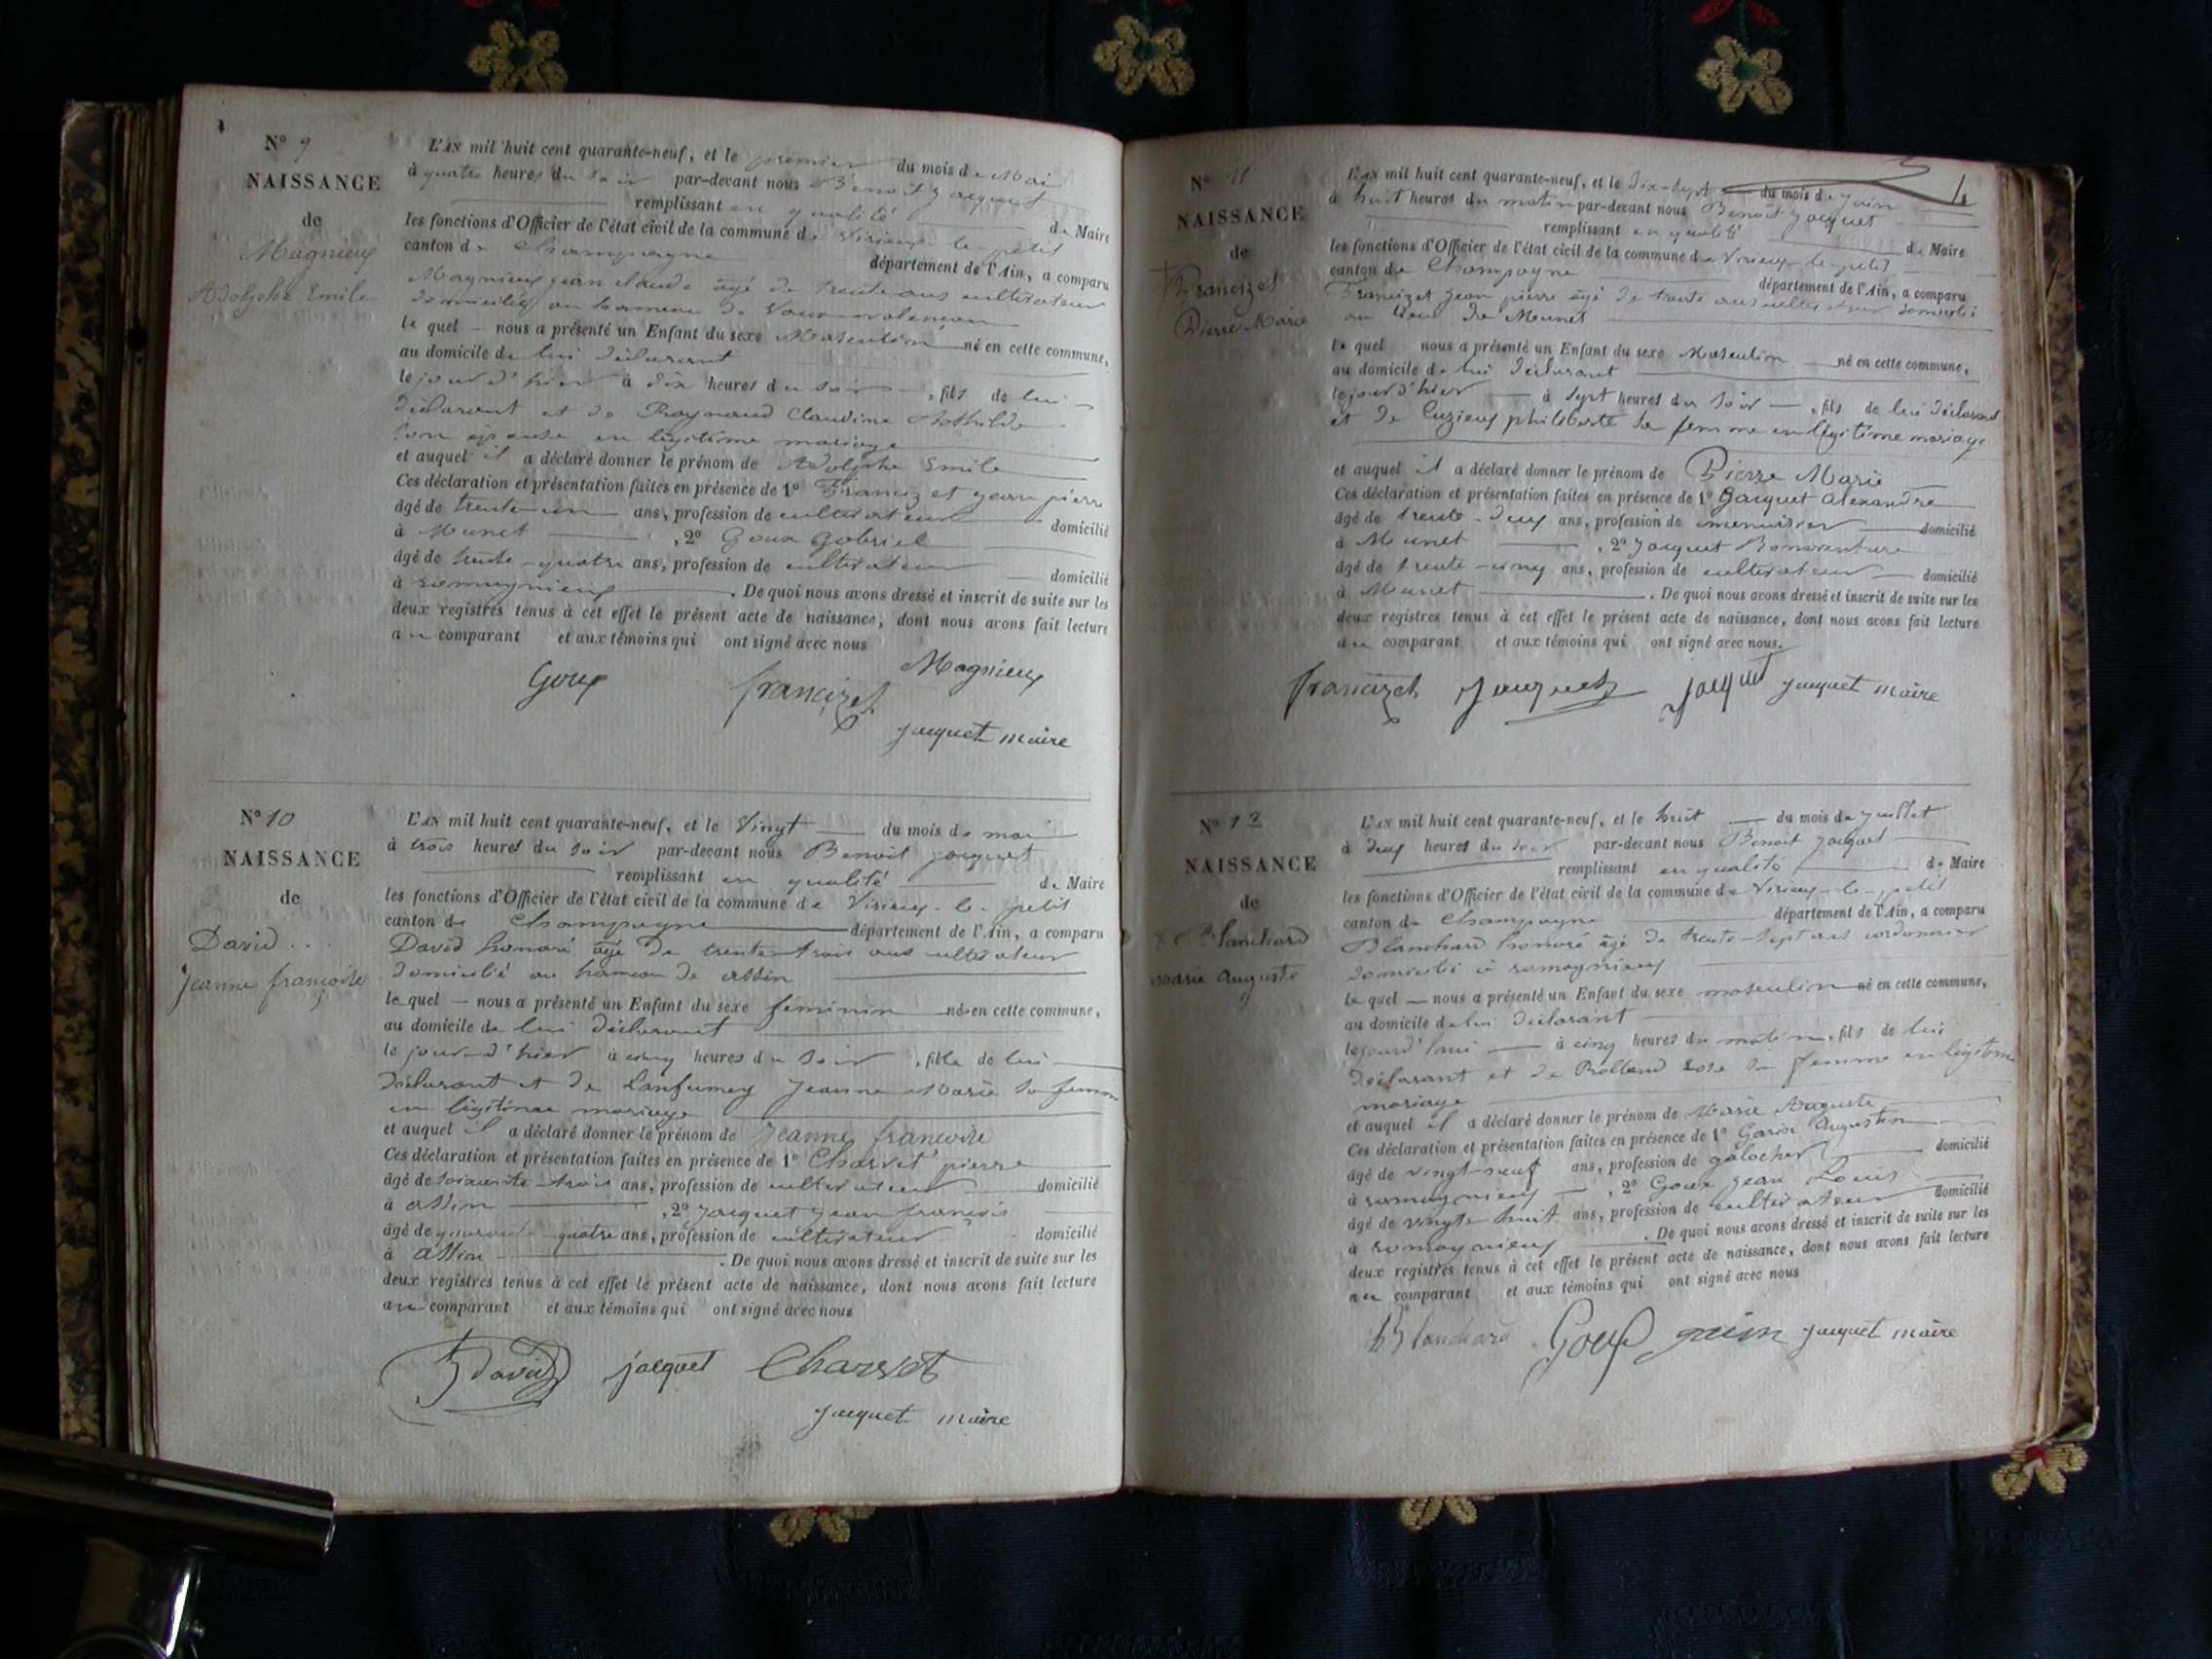 N° 9
NAISSANCE
de
Magnieux
Adolphe Emile
L'AN mil huit cent quarante-neuf, et le premier du mois de Mai
à quatre heures du soir par-devant nous Benoit Jacquet
remplissant en qualité de Maire
les fonctions d'Officier de l'état civil de la commune de Virieux-le-petit
canton de Champagne département de l'Ain, a comparu
Magnieux jean claude âgé de trente ans cultivateur
domicilié au hameau de
le quel — nous a présenté un Enfant du sexe Masculin né en cette commune,
au domicile de lui déclarant
le jour d'hier à dix heures du soir, fils de lui
déclarant et de Raynaud Claudine
son épouse en légitime mariage
et auquel il a déclaré donner le prénom de Adolphe Emile
Ces déclaration et présentation faites en présence de 1° Francizet jean pierre
âgé de trente-un ans, profession de cultivateur domicilié
à Munet, 2° Goux Gabriel
âgé de trente-quatre ans, profession de cultivateur domicilié
à romagnieux. De quoi nous avons dressé et inscrit de suite sur les
deux registres tenus à cet effet le présent acte de naissance, dont nous avons fait lecture
au comparant et aux témoins qui ont signé avec nous
Goux francizet Magnieux
jacquet maire
N° 10
NAISSANCE
de
David
Jeanne françoise
L'AN mil huit cent quarante-neuf, et le vingt du mois de mai
à trois heures du soir par-devant nous Benoit jacquet
remplissant en qualité de Maire
les fonctions d'Officier de l'état civil de la commune de Virieux-le-petit
canton de Champagne département de l'Ain, a comparu
David honoré âgé de trente trois ans cultivateur
domicilié au hameau de assin
le quel — nous a présenté un Enfant du sexe féminin née en cette commune,
au domicile de lui déclarant
le jour-d'hier à cinq heures du soir, fille de lui
déclarant et de Lanfumey Jeanne Marie sa femme
en légitime mariage
et auquel il a déclaré donner le prénom de Jeanne françoise
Ces déclaration et présentation faites en présence de 1° Charvet pierre
âgé de soixante-trois ans, profession de cultivateur domicilié
à assin, 2° Jacquet Jean françois
âgé de quarante-quatre ans, profession de cultivateur domicilié
à assin. De quoi nous avons dressé et inscrit de suite sur les
deux registres tenus à cet effet le présent acte de naissance, dont nous avons fait lecture
au comparant et aux témoins qui ont signé avec nous
David jacquet Charvet
jacquet maire
N° 11
NAISSANCE
de
Francizet
Pierre Marie
L'AN mil huit cent quarante-neuf, et le dix-sept du mois de juin
à huit heures du matin par-devant nous Benoit Jacquet
remplissant en qualité de Maire
les fonctions d'Officier de l'état civil de la commune de Virieux-le-petit
canton de Champagne département de l'Ain, a comparu
Francizet Jean pierre âgé de trente ans cultivateur domicilié
au lieu de Munet
le quel nous a présenté un Enfant du sexe Masculin né en cette commune,
au domicile de lui déclarant
le jour d'hier à sept heures du soir, fils de lui déclarant
et de Luzieux philiberte sa femme en légitime mariage
et auquel il a déclaré donner le prénom de Pierre Marie
Ces déclaration et présentation faites en présence de 1° Jacquet alexandre
âgé de trente-deux ans, profession de menuisier domicilié
à Munet, 2° Jacquet Bonaventure
âgé de trente-cinq ans, profession de cultivateur domicilié
à Munet. De quoi nous avons dressé et inscrit de suite sur les
deux registres tenus à cet effet le présent acte de naissance, dont nous avons fait lecture
au comparant et aux témoins qui ont signé avec nous.
francizet Jacquet jacquet jacquet maire
NAISSANCE
de
Blanchard
Marie Auguste
L'AN mil huit cent quarante-neuf, et le huit du mois de juillet
à deux heures du soir par-devant nous Benoit Jacquet
remplissant en qualité de Maire
les fonctions d'Officier de l'état civil de la commune de Virieux-le-petit
canton de Champagne département de l'Ain, a comparu
Blanchard honoré âgé de trente-sept ans cordonnier
domicilié à romagnieux
le quel — nous a présenté un Enfant du sexe masculin né en cette commune,
au domicile de lui déclarant
le jourd'hui à cinq heures du matin, fils de lui
déclarant et de Rolland Rose sa femme en légitime
mariage
et auquel il a déclaré donner le prénom de Marie Auguste
Ces déclaration et présentation faites en présence de 1° Garin Augustin
âgé de vingt-neuf ans, profession de galocher domicilié
à romagnieux, 2° Goux jean Louis
âgé de vingt-huit ans, profession de cultivateur domicilié
à romagnieux. De quoi nous avons dressé et inscrit de suite sur les
deux registres tenus à cet effet le présent acte de naissance, dont nous avons fait lecture
au comparant et aux témoins qui ont signé avec nous
Blanchard Goux jacquet maire